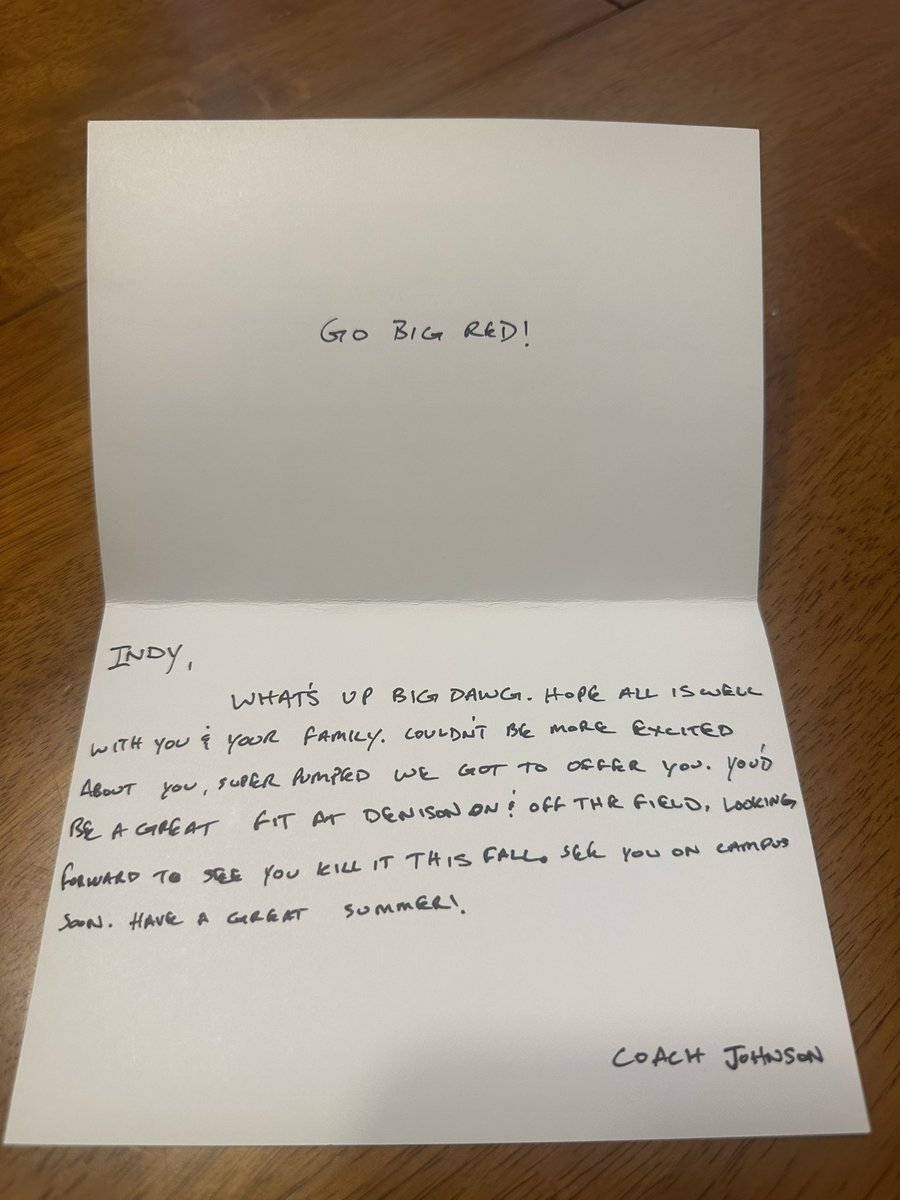 GO BIG RED!
INDY,
WHAT'S UP BIG DAWG. HOPE ALL IS WELL
WITH YOU & YOUR FAMILY. COULDN'T BE MORE EXCITED
ABOUT YOU, SUPER PUMPED WE GOT TO OFFER YOU. YOU'D
BE A GREAT FIT AT DENISON ON & OFF THE FIELD. LOOKING
FORWARD TO SEE YOU KILL IT THIS FALL. SEE YOU ON CAMPUS
SOON. HAVE A GREAT SUMMER!
COACH JOHNSON